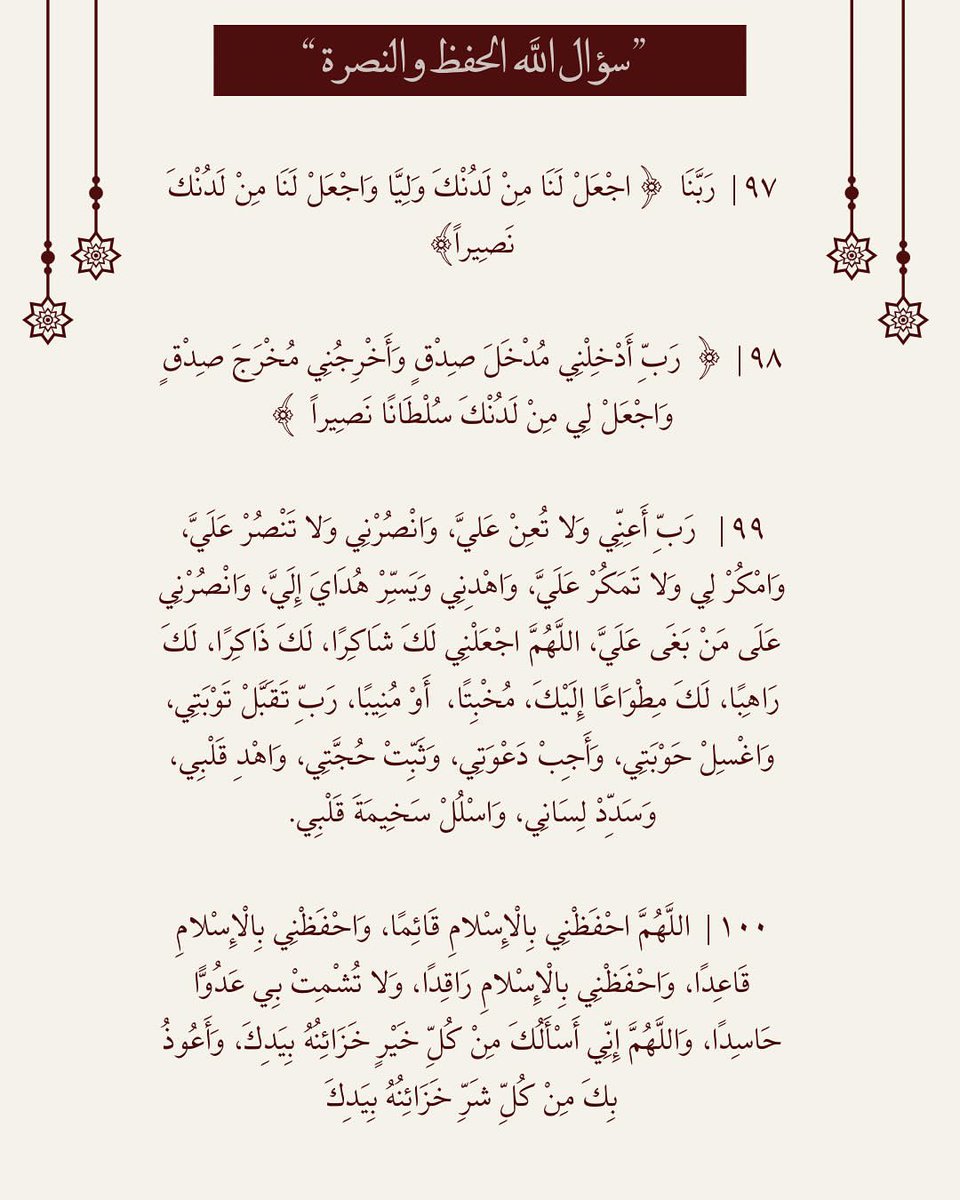 ”سؤال الله الحفظ والنصرة“
٩٧| رَبَّنَا ﴿ اجْعَلْ لَنَا مِنْ لَدُنْكَ وَلِيًّا وَاجْعَلْ لَنَا مِنْ لَدُنْكَ
نَصِيراً﴾
٩٨| ﴿ رَبِّ أَدْخِلْنِي مُدْخَلَ صِدْقٍ وَأَخْرِجْنِي مُخْرَجَ صِدْقٍ
وَاجْعَلْ لِي مِنْ لَدُنْكَ سُلْطَانًا نَصِيراً ﴾
٩٩| رَبِّ أَعِنِّي وَلا تُعِنْ عَليَّ، وَانْصُرْنِي وَلا تَنْصُرْ عَلَيَّ،
وَامْكُرْ لِي وَلا تَمَكُرْ عَلَيَّ، وَاهْدِنِي وَيَسِّرْ هُدَايَ إِلَيَّ، وَانْصُرْنِي
عَلَى مَنْ بَغَى عَلَيَّ، اللَّهُمَّ اجْعَلْنِي لَكَ شَاكِرًا، لَكَ ذَاكِرًا، لَكَ
رَاهِبًا، لَكَ مِطْوَاعًا إِلَيْكَ، مُخْبِتًا، أَوْ مُنِيبًا، رَبِّ تَقَبَّلْ تَوْبَتِي،
وَاغْسِلْ حَوْبَتِي، وَأَجِبْ دَعْوَتِي، وَثَبِّتْ حُجَّتِي، وَاهْدِ قَلْبِي،
وَسَدِّدْ لِسَانِي، وَاسْلُلْ سَخِيمَةَ قَلْبِي.
١٠٠| اللَّهُمَّ احْفَظْنِي بِالْإِسْلامِ قَائِمًا، وَاحْفَظْنِي بِالْإِسْلامِ
قَاعِدًا، وَاحْفَظْنِي بِالْإِسْلامِ رَاقِدًا، وَلا تُشْمِتْ بِي عَدُوًّا
حَاسِدًا، وَاللَّهُمَّ إِنِّي أَسْأَلُكَ مِنْ كُلِّ خَيْرٍ خَزَائِنُهُ بِيَدِكَ، وَأَعُوذُ
بِكَ مِنْ كُلِّ شَرِّ خَزَائِنُهُ بِيَدِكَ